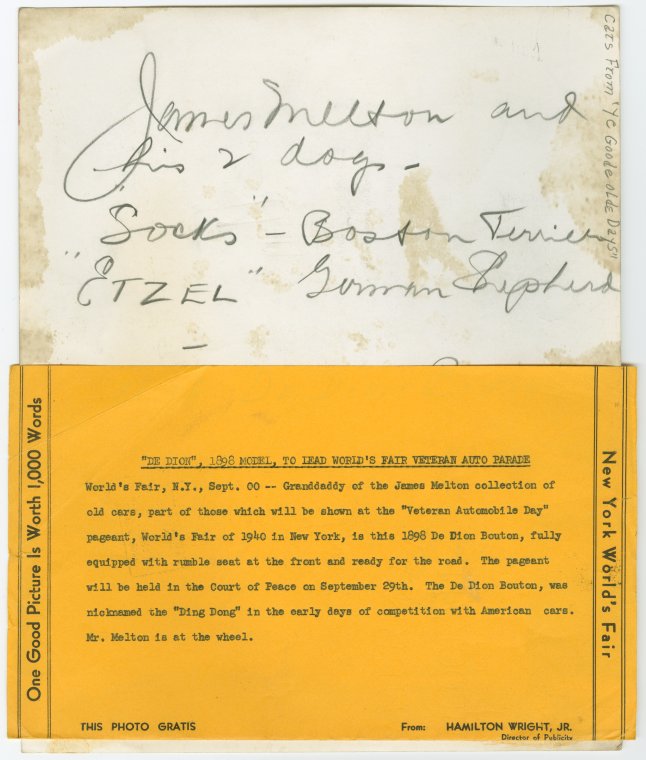 James Melton and
his 2 dogs -
"Socks" - Boston Terrier
"ETZEL" German Shepherd
-
Cars From 'Ye Goode olde Days"
One Good Picture Is Worth 1,000 Words
"DE DION", 1898 MODEL, TO LEAD WORLD'S FAIR VETERAN AUTO PARADE
World's Fair, N.Y., Sept. 00 -- Granddaddy of the James Melton collection of
old cars, part of those which will be shown at the "Veteran Automobile Day"
pageant, World's Fair of 1940 in New York, is this 1898 De Dion Bouton, fully
equipped with rumble seat at the front and ready for the road. The pageant
will be held in the Court of Peace on September 29th. The De Dion Bouton, was
nicknamed the "Ding Dong" in the early days of competition with American cars.
Mr. Melton is at the wheel.
THIS PHOTO GRATIS
From: HAMILTON WRIGHT, JR.
Director of Publicity
New York World's Fair